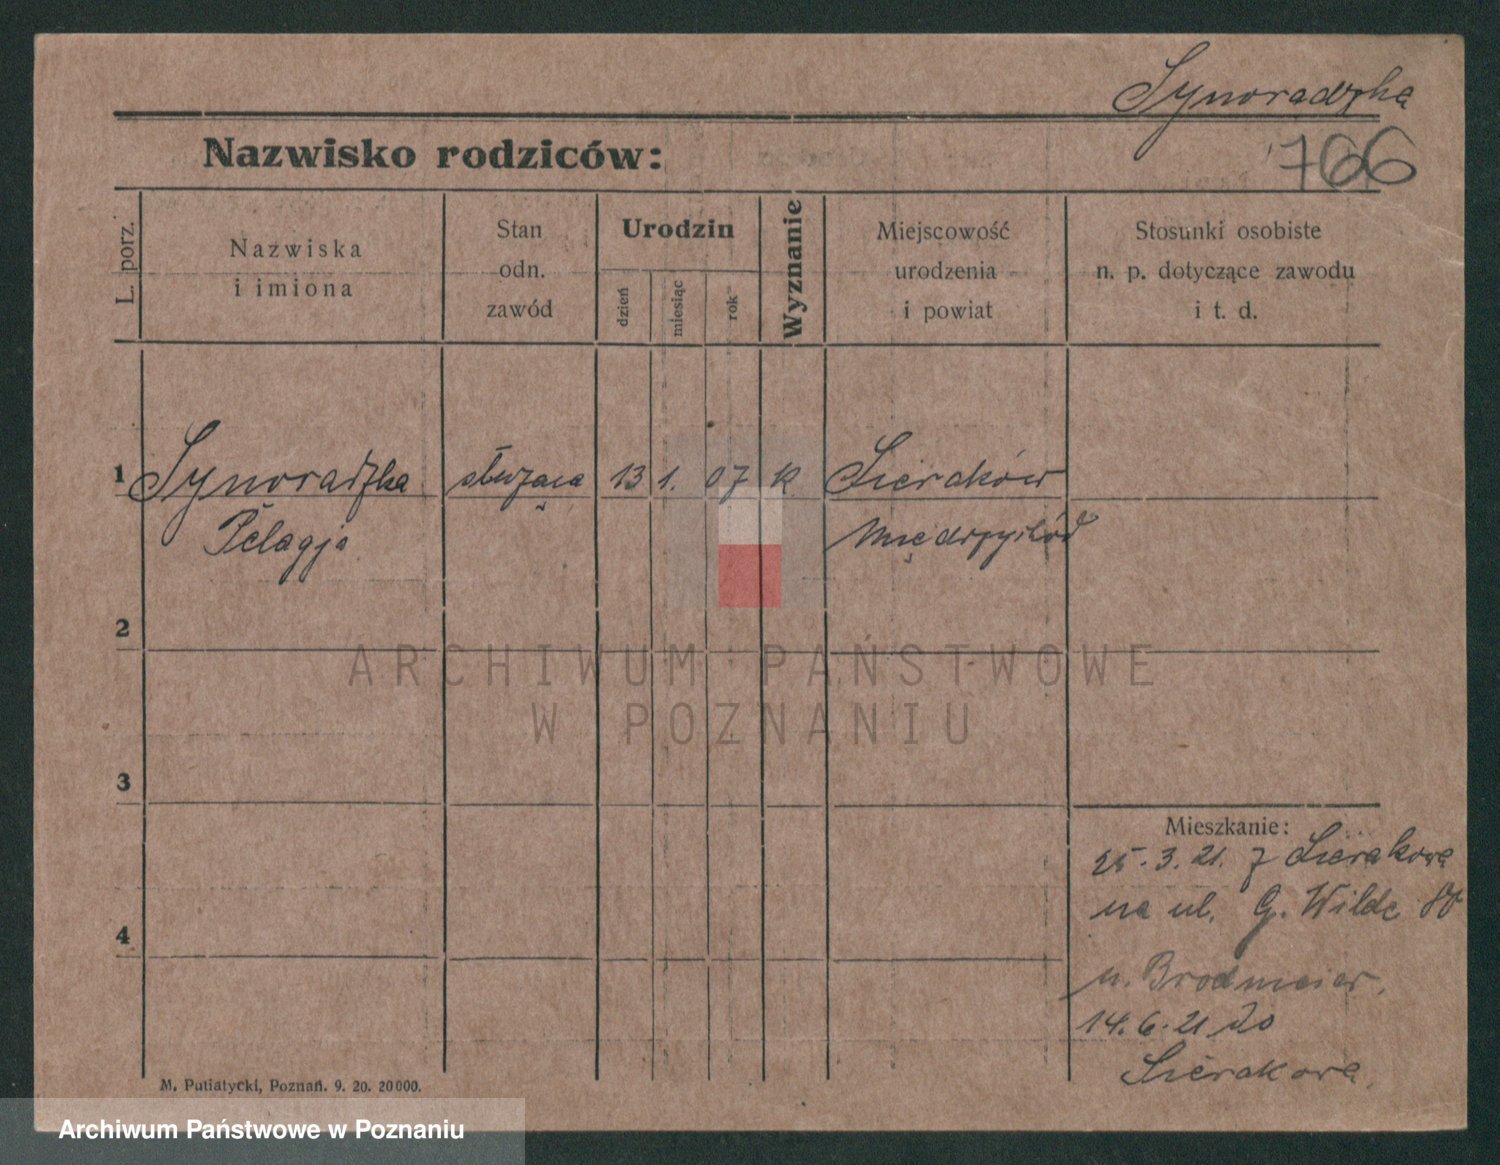 Synoradzka
766
Nazwisko rodziców:
L. porz.
Nazwiska
i imiona
Stan
odn.
zawód
Urodzin
dzień
miesiąc
rok
Wyznanie
Miejscowość
urodzenia
i powiat
Stosunki osobiste
n. p. dotyczące zawodu
i t. d.
1 Synoradzka służąca 13 1. 07 k Sieraków
Pelagja Międzychód
2
3
4
Mieszkanie:
25.3.21. z Sierakowa
na ul. G. Wilde
u. Brodmeier.
14.6.21 do
Sierakowa.
M. Putiatycki, Poznań. 9. 20. 20000.
ARCHIWUM PAŃSTWOWE
W POZNANIU
Archiwum Państwowe w Poznaniu